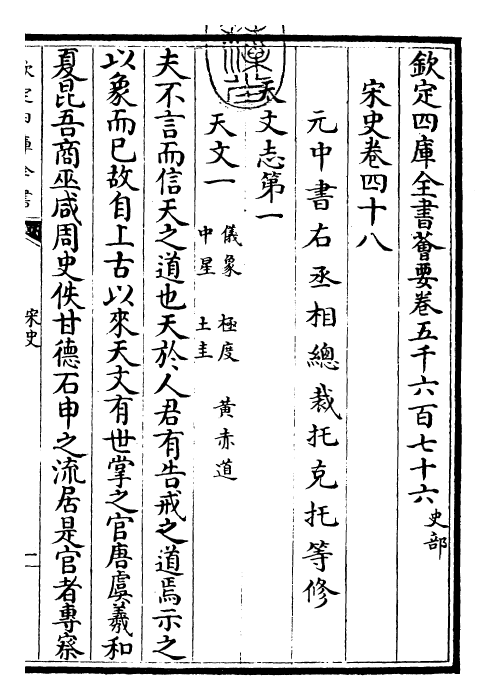 欽定四庫全書薈要卷五千六百七十六 史部
宋史卷四十八
元中書右丞相總裁托克托等修
天文志第一
天文一 儀象 極度 黃赤道
中星 土圭
夫不言而信天之道也天於人君有告戒之道焉示之
以象而已故自上古以來天文有世掌之官唐虞羲和
夏昆吾商巫咸周史佚甘德石申之流居是官者專察
欽定四庫全書
宋史
一